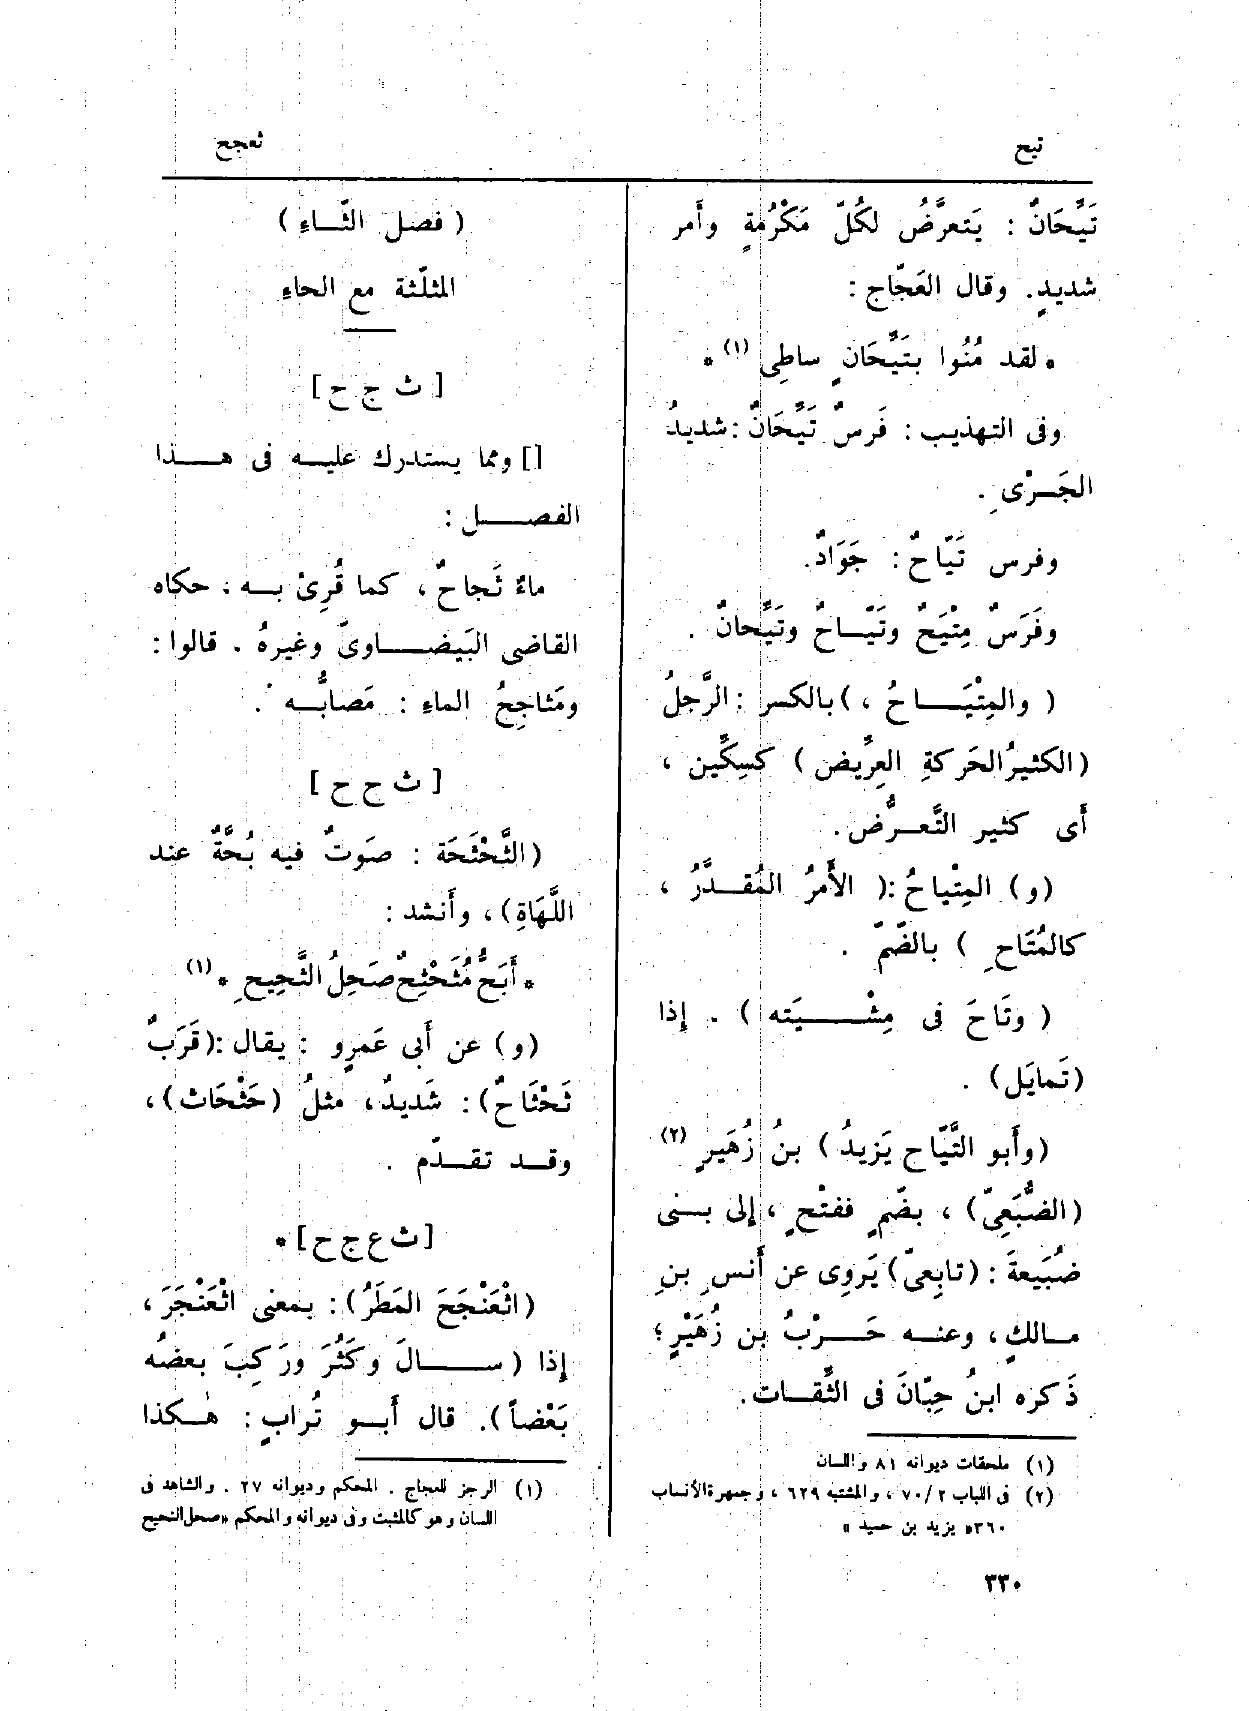 تيح
ثعجح
تَيِّحَانٌ : يَتعرَّضُ لكُلّ مَكْرُمةٍ وأَمر
شديدٍ. وقال العَجّاج :
* لقد مُنُوا بتَيِّحَانٍ ساطِى (١) *
وفى التهذيب : فَرسٌ تَيِّحَانٌ : شديدُ
الجَـرْىِ .
وفرس تَيّاحٌ : جَوَادٌ.
وفَرَسٌ مِتْيَحٌ وتَيّـاحٌ وتَيِّحانٌ .
( والمِتْيَـاحُ ، ) بالكسر : الرَّجلُ
(الكثيرُ الحَركةِ العِرِّيض ) كسِكِّين ،
أَى كثير التَّعـرُّض .
(و) المِتْياحُ :( الأَمرُ المُقـدَّرُ ،
كالمُتَاحِ ) بالضّمّ .
( وتَاحَ فى مِشْـيَته ) . إذا
(تَمايَل) .
(وأَبو التَّيّاح يَزيدُ ) بنُ زُهَيرٍ (٢)
(الضُّبَعِىّ) ، بضّمٍ ففتْحٍ ، إلى بـنى
ضُبَيعةَ : (تابِعىّ) يَروِى عن أَنسِ بنِ
مـالكٍ ، وعنـه حَـرْبُ بن زُهَيْرٍ ؛
ذَكره ابنُ حِبّانَ فى الثِّقـات .
(١) ملحقات ديوانه ٨١ واللسان
(٢) فى اللباب ٧٠/٢ ، والمشتبه ٦٢٩ ، وجمهرة الأنساب
٣٦٠ « يزيد بن حميد »
( فصل الثّـاءِ )
المثلّثة مع الحاءِ
[ ث ج ح ]
[] ومما يستدرك عليـه فى هـذا
الفصـل :
ماءٌ ثَجاحٌ ، كما قُرِئْ بـه ، حكاه
القاضى البَيضـاوىّ وغيرهُ . قالوا :
ومَثاجِحُ الماءِ : مَصابُّـه .
[ ث ح ح ]
( الثَّحْثَحَة : صَوتٌ فيه بُحَّةٌ عند
اللَّهَاةِ) ، وأَنشد :
* أَبَحُّ مُثَحْثِحٌ صَحِلُ الثَّحِيحِ * (١)
(و) عن أَبى عَمرٍو : يقال :(قَرَبٌ
ثَحْثَاحٌ) : شَديدٌ، مثلُ (حَثْحَاث) ،
وقـد تقـدّم .
[ ث ع ج ح ] *
( اثْعَنْجَحَ المَطَرُ) : بـمعنى اثْعَنْجَرَ ،
إذا ( سـالَ وكَثُرَ ورَكِبَ بعضُه
بَعْضاً ). قال أَبـو تُرابٍ : هٰـكذا
(١) الرجز للعجاج . المحكم وديوانه ٢٧ . والشاهد فى
اللسان وهو كالمثبت وفى ديوانه والمحكم « صحل النحيح
٣٣٠